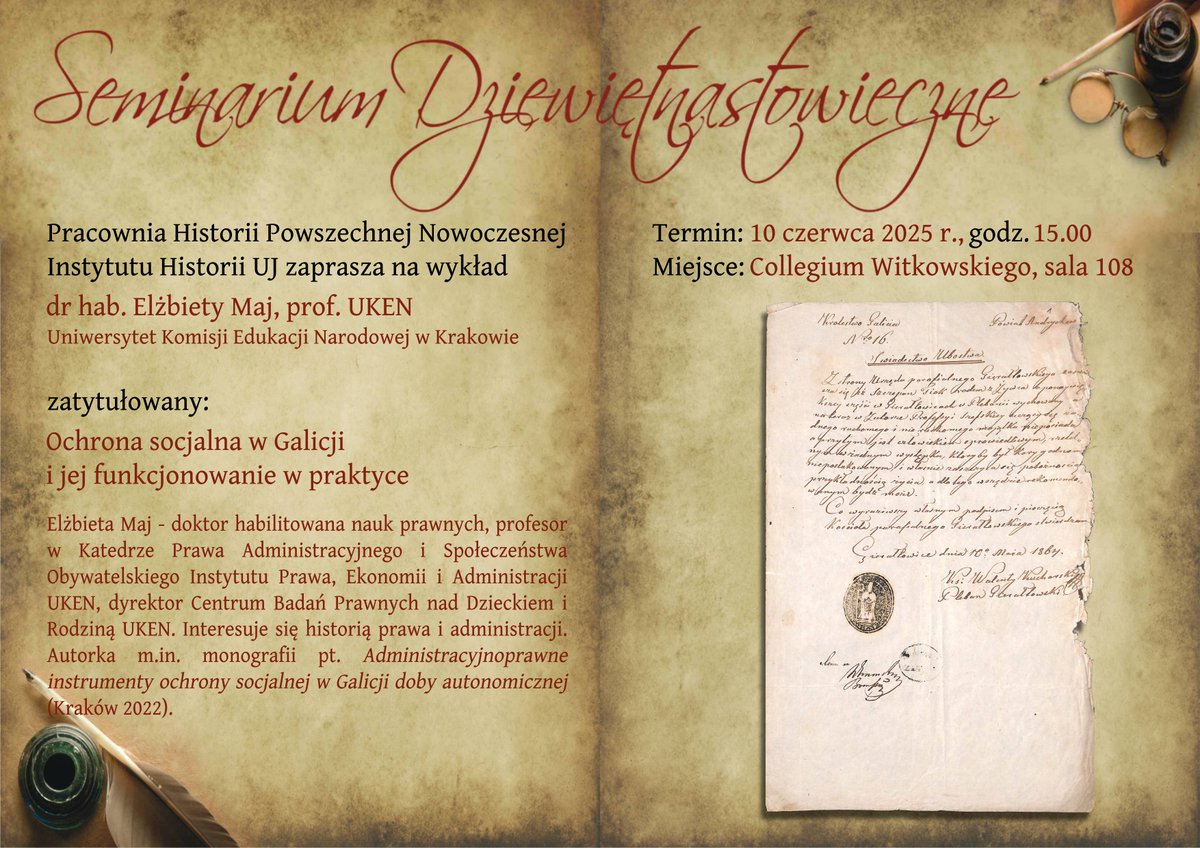 Seminarium Dziewiętnastowieczne
Pracownia Historii Powszechnej Nowoczesnej
Instytutu Historii UJ zaprasza na wykład
dr hab. Elżbiety Maj, prof. UKEN
Uniwersytet Komisji Edukacji Narodowej w Krakowie
zatytułowany:
Ochrona socjalna w Galicji
i jej funkcjonowanie w praktyce
Elżbieta Maj - doktor habilitowana nauk prawnych, profesor
w Katedrze Prawa Administracyjnego i Społeczeństwa
Obywatelskiego Instytutu Prawa, Ekonomii i Administracji
UKEN, dyrektor Centrum Badań Prawnych nad Dzieckiem i
Rodziną UKEN. Interesuje się historią prawa i administracji.
Autorka m.in. monografii pt. Administracyjnoprawne
instrumenty ochrony socjalnej w Galicji doby autonomicznej
(Kraków 2022).
Termin: 10 czerwca 2025 r., godz. 15.00
Miejsce: Collegium Witkowskiego, sala 108
Królestwo Galicia Powiat
Nro 16.
Swiadectwo Ubostwa
Z strony Urzędu parafialnego
się że Szczepan
w
majątku nieposiada
a przytym jest człowiekiem sprawiedliwym,
był
życia, a dla tego wszędzie
wanym bydź może.
Co wyrażiwszy własnym podpisem i pieczęcią
Kościoła parafialnego stwierdzam
dnia 10o Maia 1864.
Walenty
Pleban